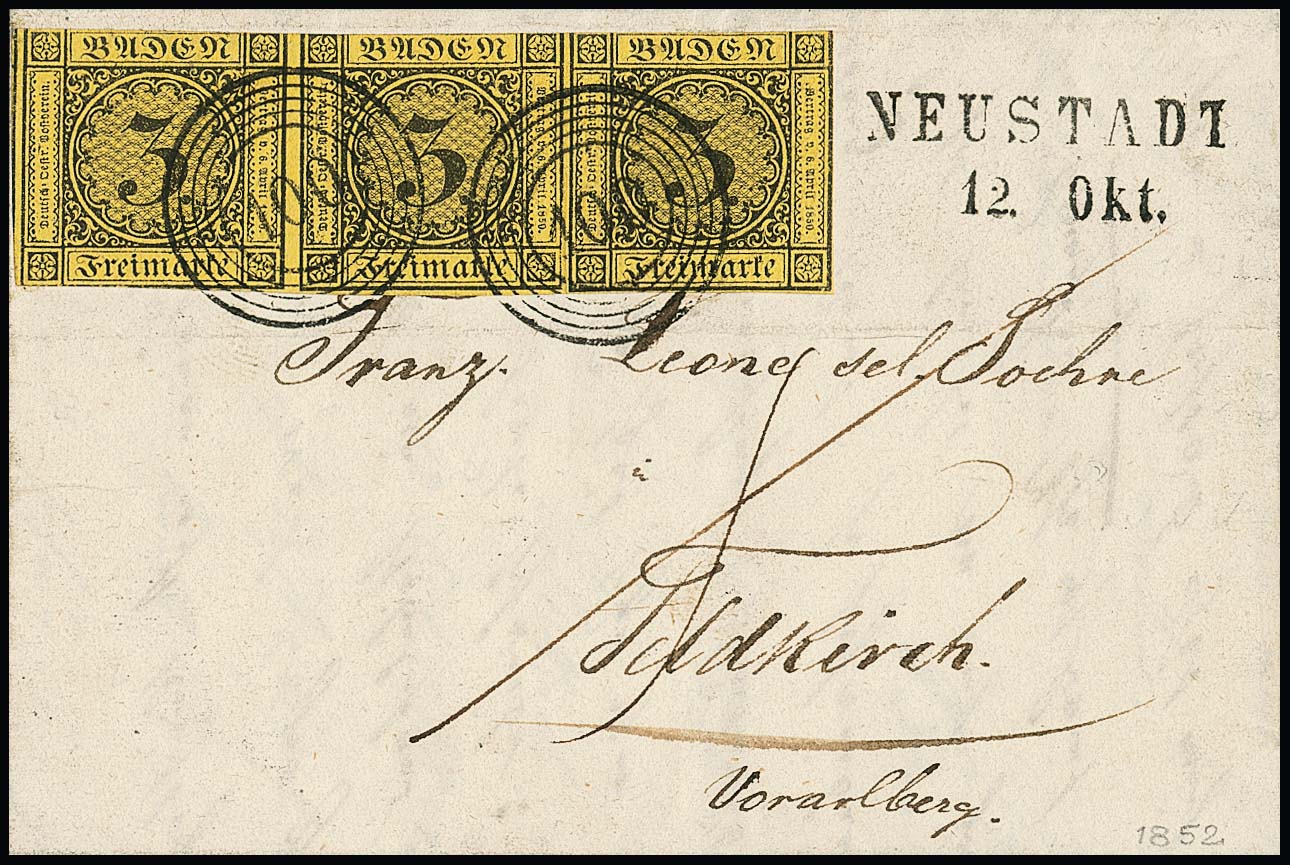 BADEN BADEN BADEN
3 3 3
Freimarke Freimarke Freimarke
NEUSTADT
12. Okt.
Franz. Leone sel. Soehne
Feldkirch.
Vorarlberg.
1852